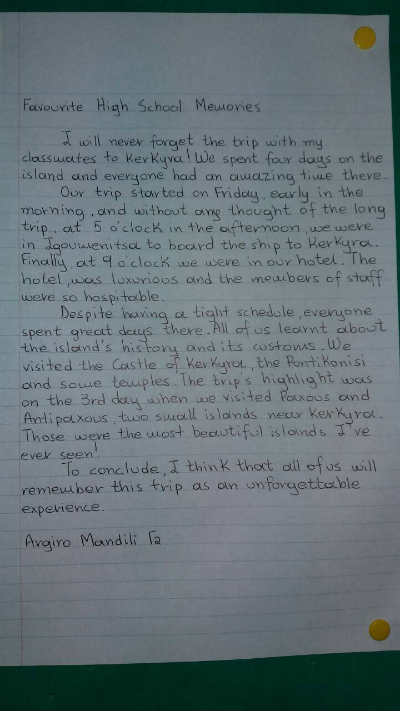 Favourite High School Memories
I will never forget the trip with my
classmates to Kerkyra! We spent four days on the
island and everyone had an amazing time there.
Our trip started on Friday, early in the
morning, and without any thought of the long
trip, at 5 o'clock in the afternoon, we were
in Igoumenitsa to board the ship to Kerkyra.
Finally, at 9 o'clock we were in our hotel. The
hotel, was luxurious and the members of staff
were so hospitable.
Despite having a tight schedule, everyone
spent great days there. All of us learnt about
the island's history and its customs. We
visited the Castle of Kerkyra, the Pontikonisi
and some temples. The trip's highlight was
on the 3rd day when we visited Paxous and
Antipaxous, two small islands near Kerkyra.
Those were the most beautiful islands I've
ever seen!
To conclude, I think that all of us will
remember this trip as an unforgettable
experience.
Argiro Mandili Γ2